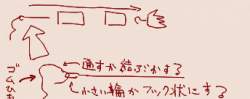 通すか結ぶかする
小さい輪かフック状にする
ゴムひも